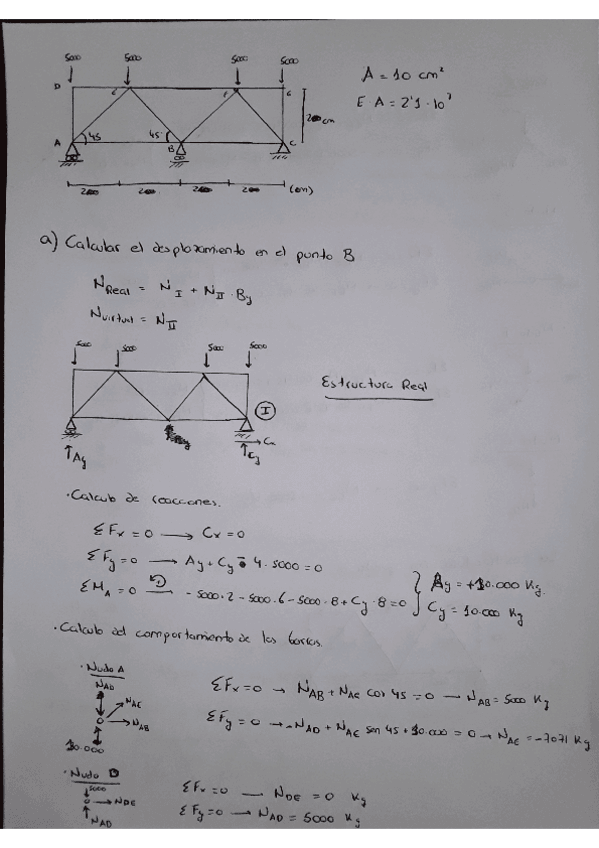 5000 5000 5000 5000
A = 10 cm²
E·A = 2'1·10⁷
D E F G
200 cm
A 45 45° B C
200 200 200 200 (cm)
a) Calcular el desplazamiento en el punto B
N Real = N I + N II · By
N virtual = N II
5000 5000 5000 5000
Estructura Real
I
Ay Cy Cx
· Calculo de reacciones.
ΣFx = 0 → Cx = 0
ΣFy = 0 → Ay + Cy - 4·5000 = 0
ΣMA = 0 → - 5000·2 - 5000·6 - 5000·8 + Cy·8 = 0
Ay = +10.000 Kg.
Cy = 10.000 Kg
· Calculo del comportamiento de las barras.
· Nudo A
NAD
NAE
NAB
10.000
ΣFx = 0 → NAB + NAE cos 45 = 0 → NAB = 5000 Kg
ΣFy = 0 → -NAD + NAE sen 45 + 10.000 = 0 → NAE = -7071 Kg
· Nudo D
5000
NDE
NAD
ΣFx = 0 → NDE = 0 Kg
ΣFy = 0 → NAD = 5000 Kg